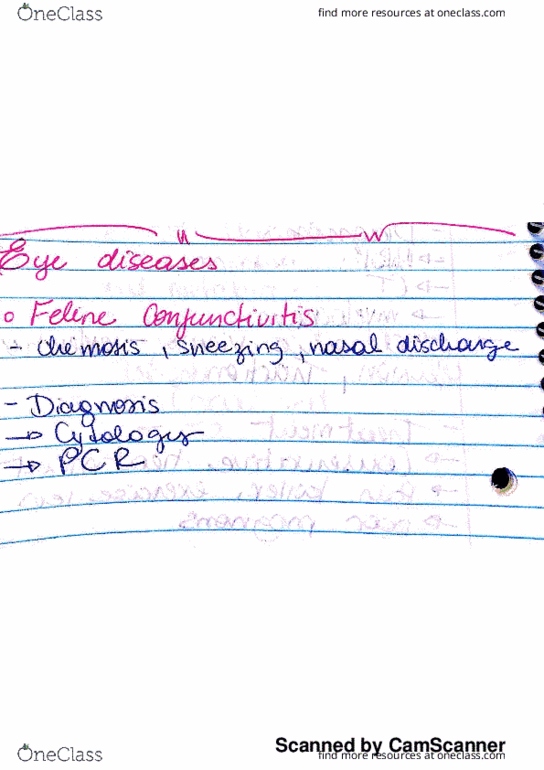 OneClass
find more resources at oneclass.com
Eye diseases
o Feline Conjunctivitis
- chemosis, sneezing, nasal discharge
- Diagnosis
→ Cytology
→ PCR
Scanned by CamScanner
OneClass
find more resources at oneclass.com